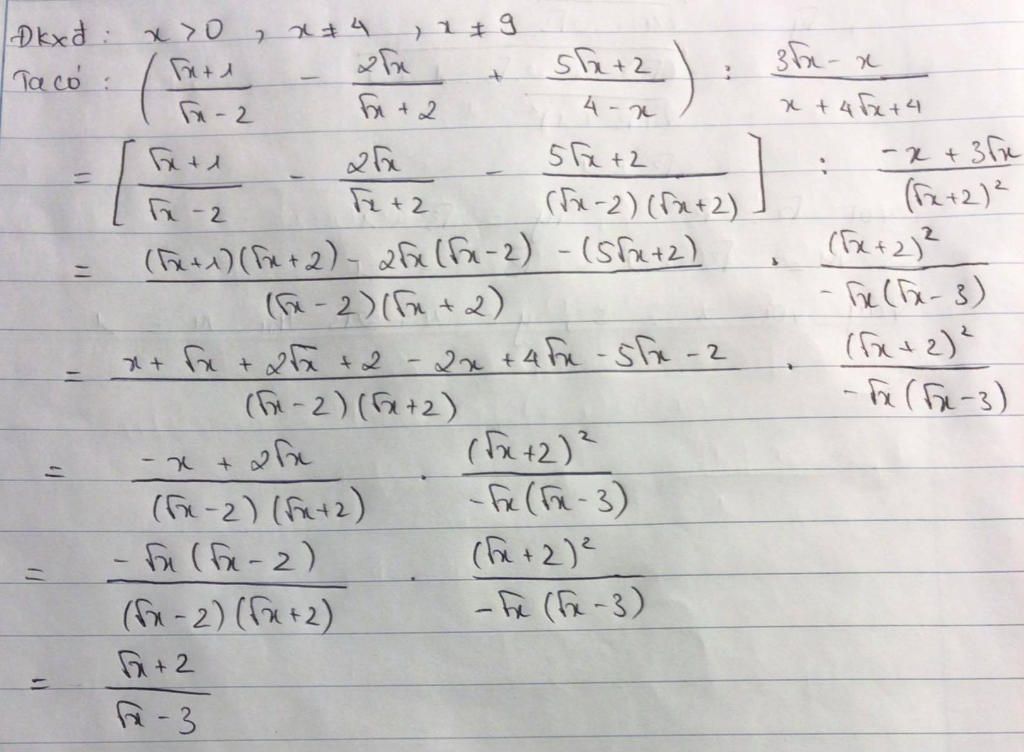 Đkxđ : x > 0 , x ≠ 4 , x ≠ 9
Ta có : ( (√x + 1)/(√x - 2) - 2√x/(√x + 2) + (5√x + 2)/(4 - x) ) : (3√x - x)/(x + 4√x + 4)
= [ (√x + 1)/(√x - 2) - 2√x/(√x + 2) - (5√x + 2)/((√x - 2)(√x + 2)) ] : (-x + 3√x)/(√x + 2)²
= ((√x + 1)(√x + 2) - 2√x(√x - 2) - (5√x + 2))/((√x - 2)(√x + 2)) . (√x + 2)²/(-√x(√x - 3))
= (x + √x + 2√x + 2 - 2x + 4√x - 5√x - 2)/((√x - 2)(√x + 2)) . (√x + 2)²/(-√x(√x - 3))
= (-x + 2√x)/((√x - 2)(√x + 2)) . (√x + 2)²/(-√x(√x - 3))
= (-√x(√x - 2))/((√x - 2)(√x + 2)) . (√x + 2)²/(-√x(√x - 3))
= (√x + 2)/(√x - 3)